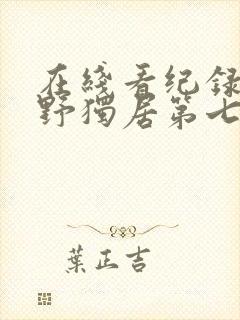 在綫看纪録
野獨居第七
葉正吉